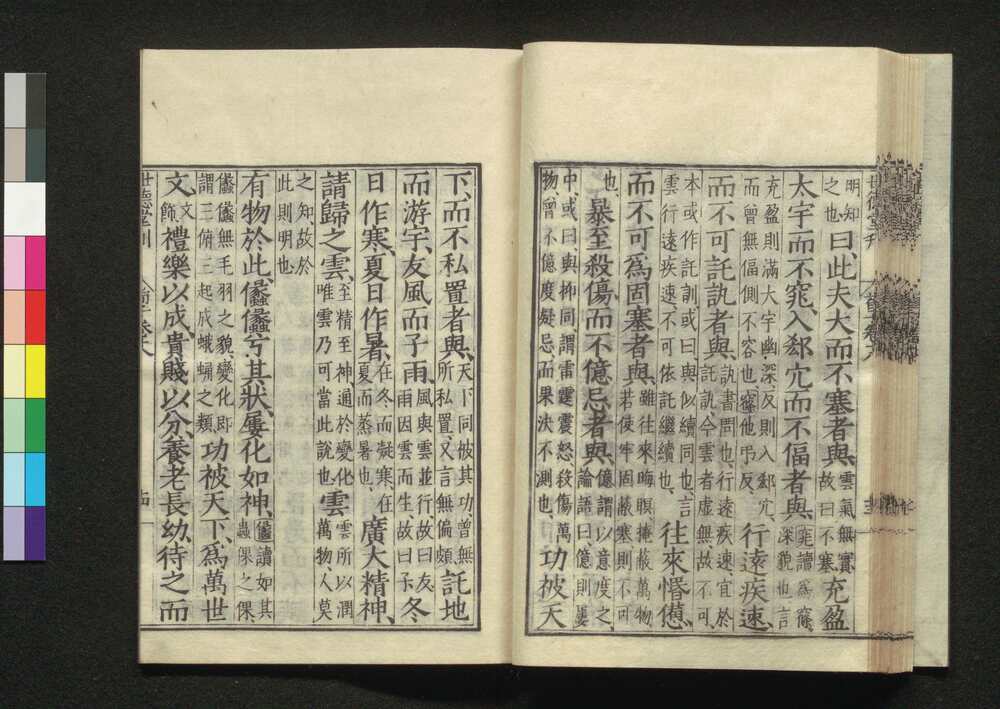 明知
之也曰、此夫大而不塞者與、雲氣無實故曰不塞充盈
太宇而不窕、入郄穴而不偪者與、窕讀爲篠深貌也言
充盈則滿大宇幽深、反則入郄穴、而曾無偪側不容也窱他弔反、行遠疾速、
而不可託訊者與、訊書問也、行遠疾速宜於託訊、今雲者虛無故不可、
本或作託訓或曰與似續同也、言雲行遠疾速、不可依託繼續也、往來惛憊、
而不可爲固塞者與、雖往來晦暝掩蔽萬物若使牢固蔽塞則不可
也、暴至殺傷而不億忌者與、億謂以意度之、論語曰億則屢
中、或曰與抑同謂雷霆震怒殺傷萬物、曾不億度疑忌而果決不測也、功被天
下、而不私置者與、天下同被其功、曾無所私置、又言無偏頗託地
而游宇、友風而子雨、風與雲並行、故曰友雨因雲而生、故曰子冬
日作寒、夏日作暑、在冬而凝寒、在夏而蒸暑也、廣大精神、
請歸之雲、至精至神通於變化唯雲乃可當此說也雲雲所以潤萬物、人莫
之知故於此則明也
有物於此、㒩㒩兮其狀、屢化如神、㒩讀如其蟲倮之倮、
㒩㒩無毛羽之貌變化即謂三俯三起成蛾蛹之類功被天下、爲萬世
文、文飾、禮樂以成、貴賤以分、養老長幼、待之而
世德堂刊